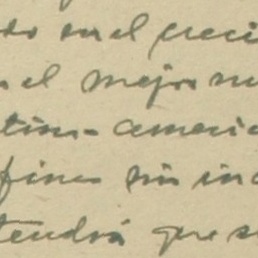 do en el creci
el mejor
tino-america
fines sin in
tendrá que s